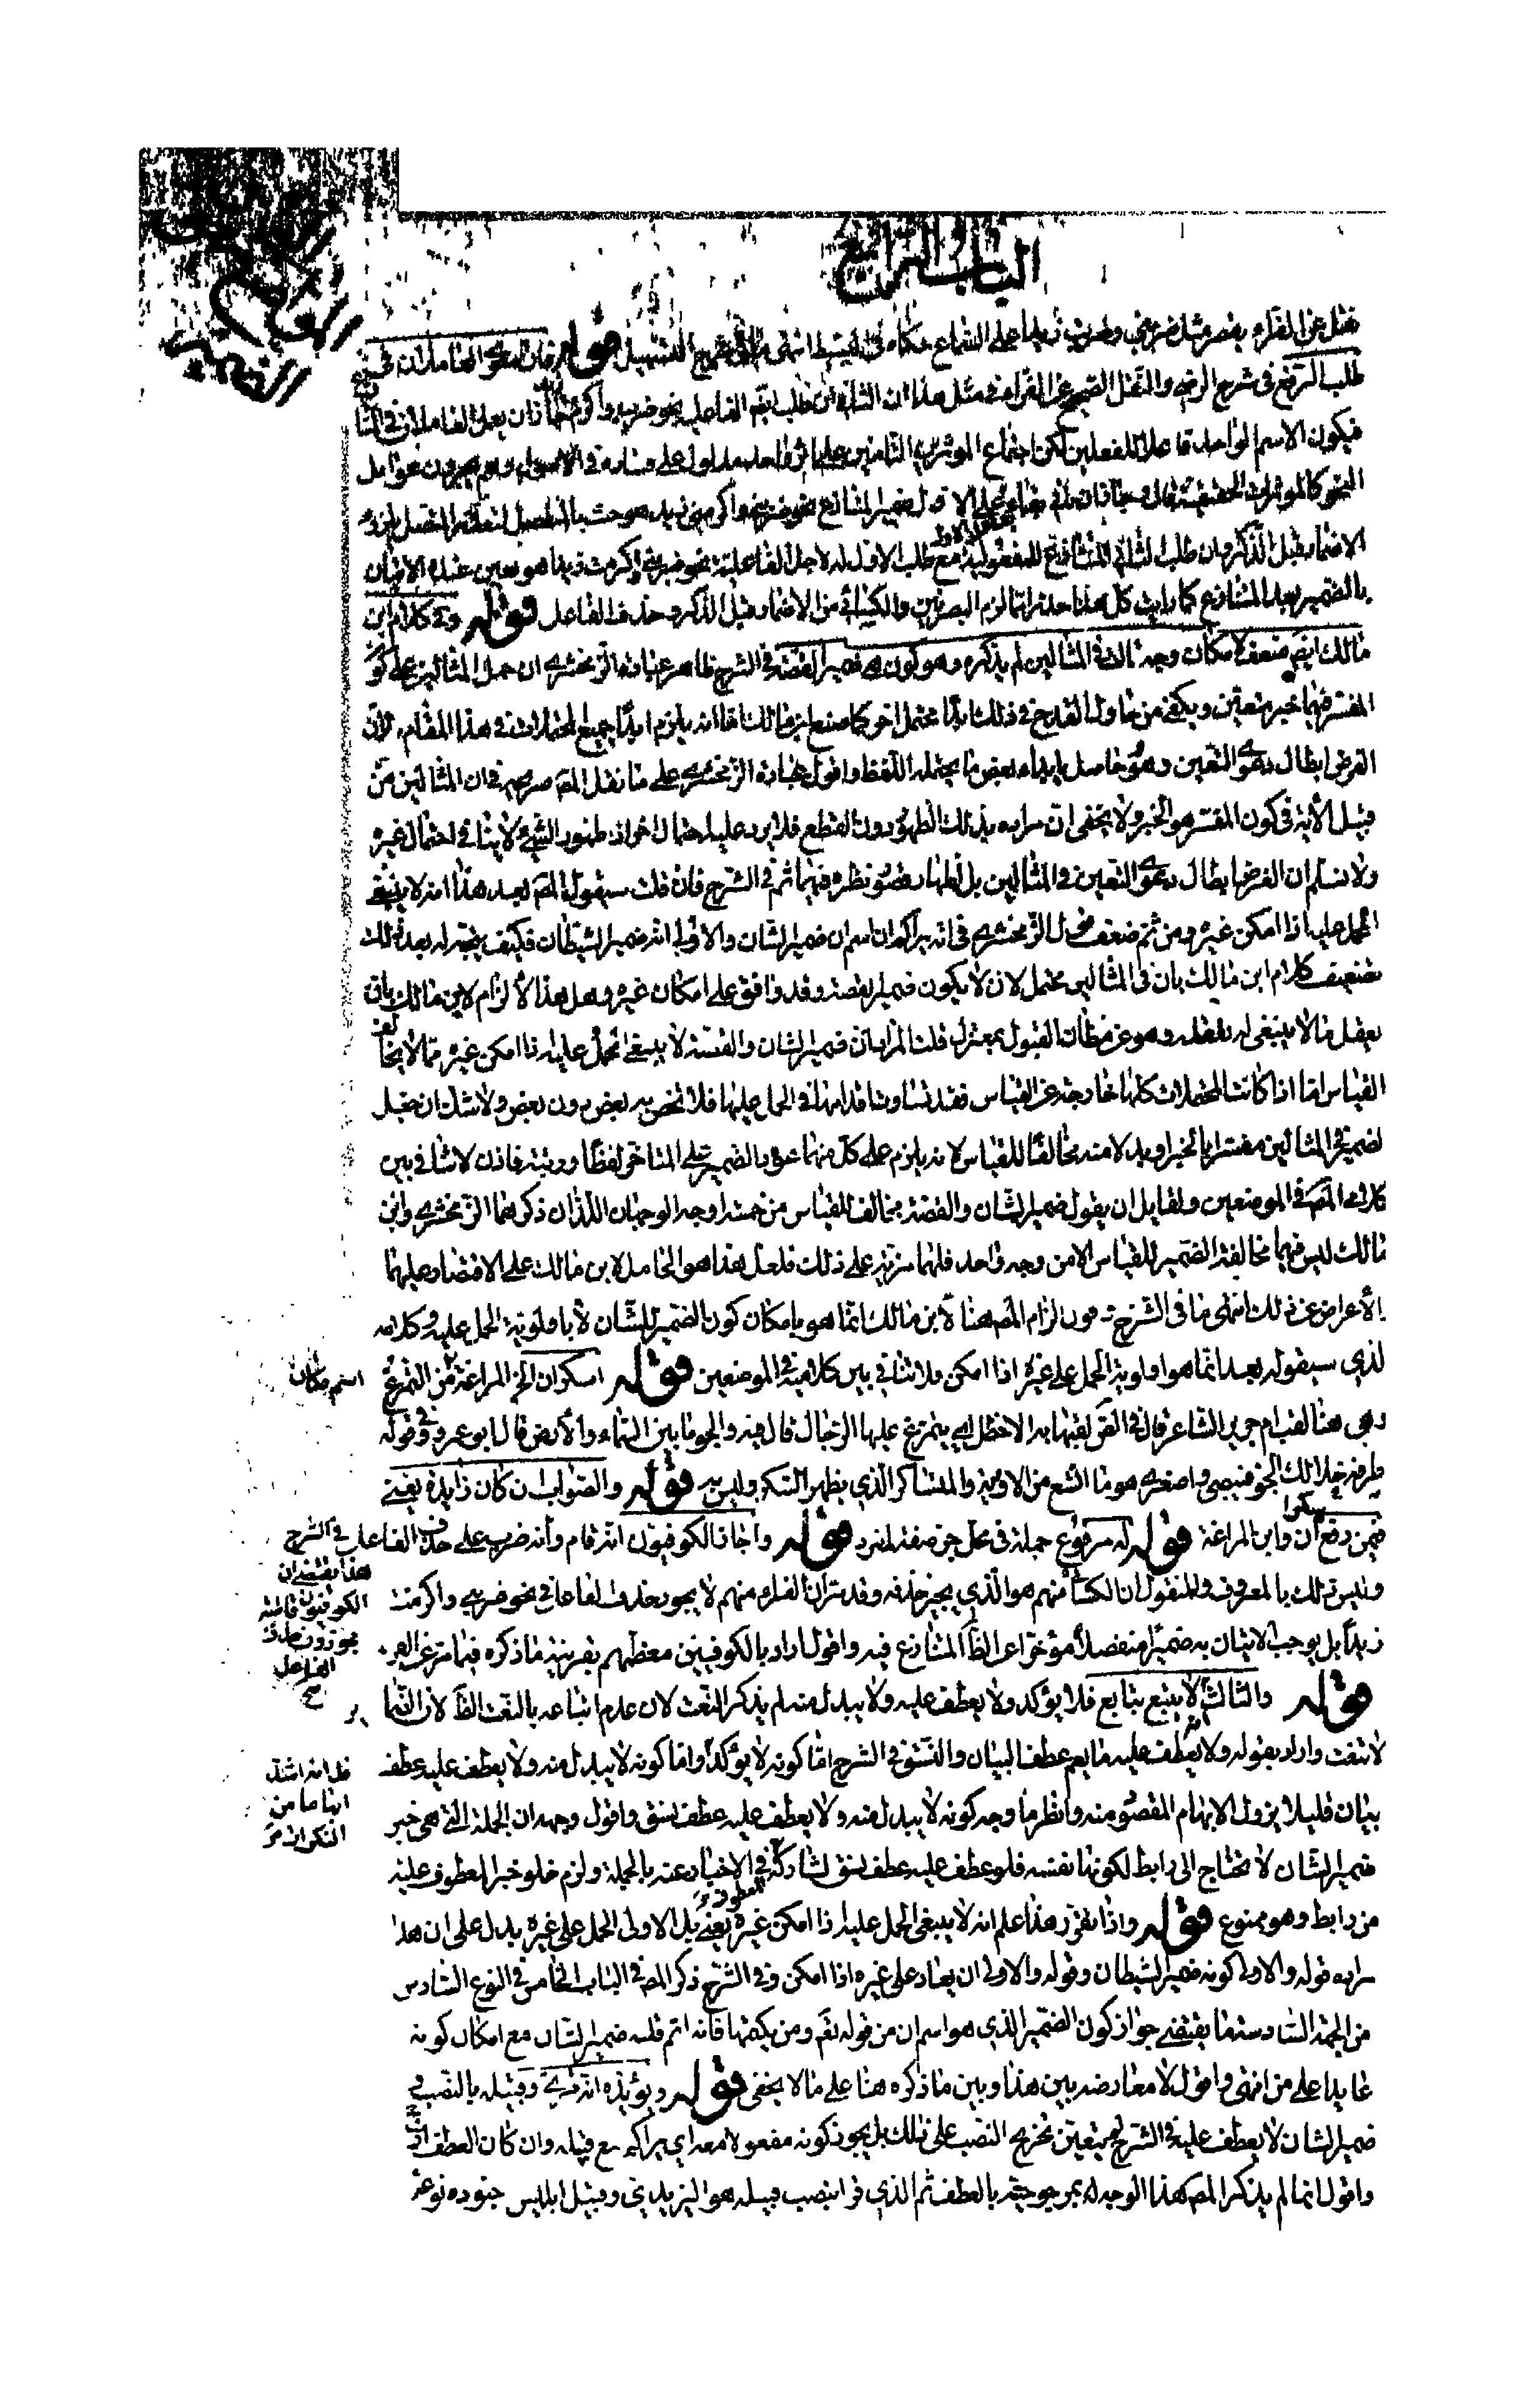 الباب الرابع
نقل عن الفراء يقصر مثل ضربني وضربت زيدا على السماع حكاه في البسيط انتهى شرح التسهيل قوله فان العاملان في
طلب الرفع في شرح الرضي والنقل الصحيح عن الفراء في مثل هذا ان الثاني ان طلب ايضا الفاعلية نحو ضرب واكرم زيد جاز ان يعمل العاملان في
فيكون الاسم الواحد فاعلا للفعلين لكن اجتماع المؤثرين التامين على اثر واحد مدلول على فساده في الاصول وهم يجرون عوامل
النحو كالمؤثرات الحقيقية قال وجاز ان تأتي بفاعل الاول ضمير المتنازع نحو ضربني واكرمني زيد هو جئت بالمنفصل لتعذر المتصل بلزوم
الاضمار قبل الذكر وان طلب الثاني المتنازع للمفعولية مع طلب الاول له لاجل الفاعلية نحو ضربني واكرمت زيدا هو تعين عنده الاتيان
بالضمير بعد المتنازع كما رايت كل هذا حذرا مما لزم البصريين والكسائي من الاضمار قبل الذكر وحذف الفاعل قوله وفي كلام ابن
مالك ايضا ضعف لامكان وجه ثالث في المثالين لم يذكره وهو كون هي ضمير القصة في الشرح ظاهر عبارة الزمخشري ان حمل المثالين على كون
المفسر فيهما خبر متعين ويكفي من حاول القدح في ذلك ابداء محتمل اخر كما صنع ابن مالك اما انه يلزم ابداء جميع المحتملات في هذا المقام فلا لان
الغرض ابطال دعوى التعين وهو حاصل بابداء بعض ما يحتمله اللفظ واقول عبارة الزمخشري على ما نقل المص صريحة في ان المثالين من
قبيل الآية في كون المفسر هو الخبر ولا يخفى ان مراده بذلك الظهور دون القطع فلا يرد عليه احتمال اخر اذ ظهور الشيء لا ينافي احتمال غيره
ولا نسلم ان الغرض ابطال دعوى التعين في المثالين بل اظهار قصور نظره فيهما ثم في الشرح فان قلت سيقول المص بعد هذا انه لا ينبغي
الحمل عليه اذا امكن غيره ومن ثم ضعف قول الزمخشري في انه يراكم ان اسم ان ضمير الشان والاولى انه ضمير الشيطان فكيف يتجه له بعد ذلك
تضعيف كلام ابن مالك بان في المثالين محتمل لان لا يكون ضمير القصة وقد وافق على امكان غيره وهل هذا الا الزام لابن مالك بان
يفعل ما لا ينبغي ان يفعله وهو عن مظان القبول بمعزل قلت المراد بان ضمير الشان والقصة لا ينبغي الحمل عليه اذا امكن غيره مما لا يخالف
القياس اما اذا كانت المحتملات كلها خارجة عن القياس فقد تساوت اقدامها في الحمل عليها فلا تخصيص ببعض دون بعض ولا شك ان جعل
الضمير في المثالين مفسرا بالخبر او بدلا منه مخالفا للقياس لانه يلزم على كل منهما عود الضمير على المتاخر لفظا ورتبة فاذن لا تنافي بين
كلامي المص في الموضعين ولقايل ان يقول ضمير الشان والقصة مخالف للقياس من خمسة اوجه والوجهان اللذان ذكرهما الزمخشري وابن
مالك ليس فيهما مخالفة الضمير للقياس الا من وجه واحد فلهما مزية على ذلك فلعل هذا هو الحامل لابن مالك على الاقتصار عليهما
والاعراض عن ذلك انتهى ما في الشرح وقول الزام المص هنا لابن مالك انما هو بامكان كون الضمير للشان لا باولوية الحمل عليه وكلامه
الذي سيقوله بعد انما هو اولوية الحمل على غيره اذا امكن فلا تنافي بين كلاميه في الموضعين قوله اسكران الخ المراغة من التمرغ
وهي هنا لقب ام جرير الشاعر قال في الص لقبها به الاخطل اي يتمرغ عليها الرجال قال فيه والجو ما بين السماء والارض قال ابو عمرو في قوله
طرفة خلا لك الجو فبيضي واصفري هو ما اتسع من الاودية والمتساكر الذي يظهر السكر وليس به قوله والصواب ان كان زايدة يعني
فيمن رفع سكران وابن المراغة قوله له مرفوع جملة في محل جر صفة لمفرد قوله واجاز الكوفيون انه قام وانه ضرب على حذف الفاعل في الشرح
وليس ذلك بالمعروف والمنقول ان الكسائي منهم هو الذي يجيز حذفه وقد مر ان الفراء منهم لا يجوز حذف الفاعل في نحو ضربني واكرمت
زيدا بل يوجب الاتيان به ضميرا منفصلا مؤخرا عن الظ المتنازع فيه واقول اراد بالكوفيين معظمهم بقرينة ما ذكره فيما مر عن الفراء
قوله والثالث انه لا يتبع بتابع فلا يؤكد ولا يعطف عليه ولا يبدل منه لم يذكر النعت لان عدم اتباعه بالنعت الظ لان الضمائر
لا تنعت واراد بقوله ولا يعطف عليه ما يعم عطف البيان والنسق في الشرح اما كونه لا يؤكد واما كونه لا يبدل منه ولا يعطف عليه عطف
بيان فلئلا يزول الابهام المقصود منه وانظر ما وجه كونه لا يبدل منه ولا يعطف عليه عطف نسق واقول وجهه ان الجملة التي هي خبر
ضمير الشان لا تحتاج الى رابط لكونها نفسه فلو عطف عليه عطف نسق لشاركه المعطوف في الاخبار عنه بالجملة ولزم خلو خبر المعطوف عليه
من رابط وهو ممنوع قوله واذا تقرر هذا علم انه لا ينبغي الحمل عليه اذا امكن غيره يعني بل الاولى الحمل على غيره يدل على ان هذا
مراده قوله والاولى كونه ضمير الشيطان وقوله والاولى ان يعاد على غيره اذا امكن وفي الشرح ذكر المص في الباب الخامس في النوع السادس
من الجهة السادسة ما يقتضي جواز كون الضمير الذي هو اسم ان من قوله تعالى ومن يكتمها فانه اثم قلبه ضمير الشان مع امكان كونه
عايدا على من انتهى واقول لا معارضة بين هذا وبين ما ذكره هنا على ما لا يخفى قوله ويؤيده انه قرئ وقبيله بالنصب و
ضمير الشان لا يعطف عليه في الشرح لم يتعين تخريج النصب على ذلك بل يجوز كونه مفعولا معه اي يراكم مع قبيله وان كان العطف
واقول انما لم يذكر المص هذا الوجه لمرجوحيته بالعطف ثم الذي قرا بنصب قبيله هو اليزيدي وقبيل ابليس جنوده نوعه
اسم مكان
هذا يقتضي ان
الكوفيون قاطبة
يجوزون حذف
الفاعل